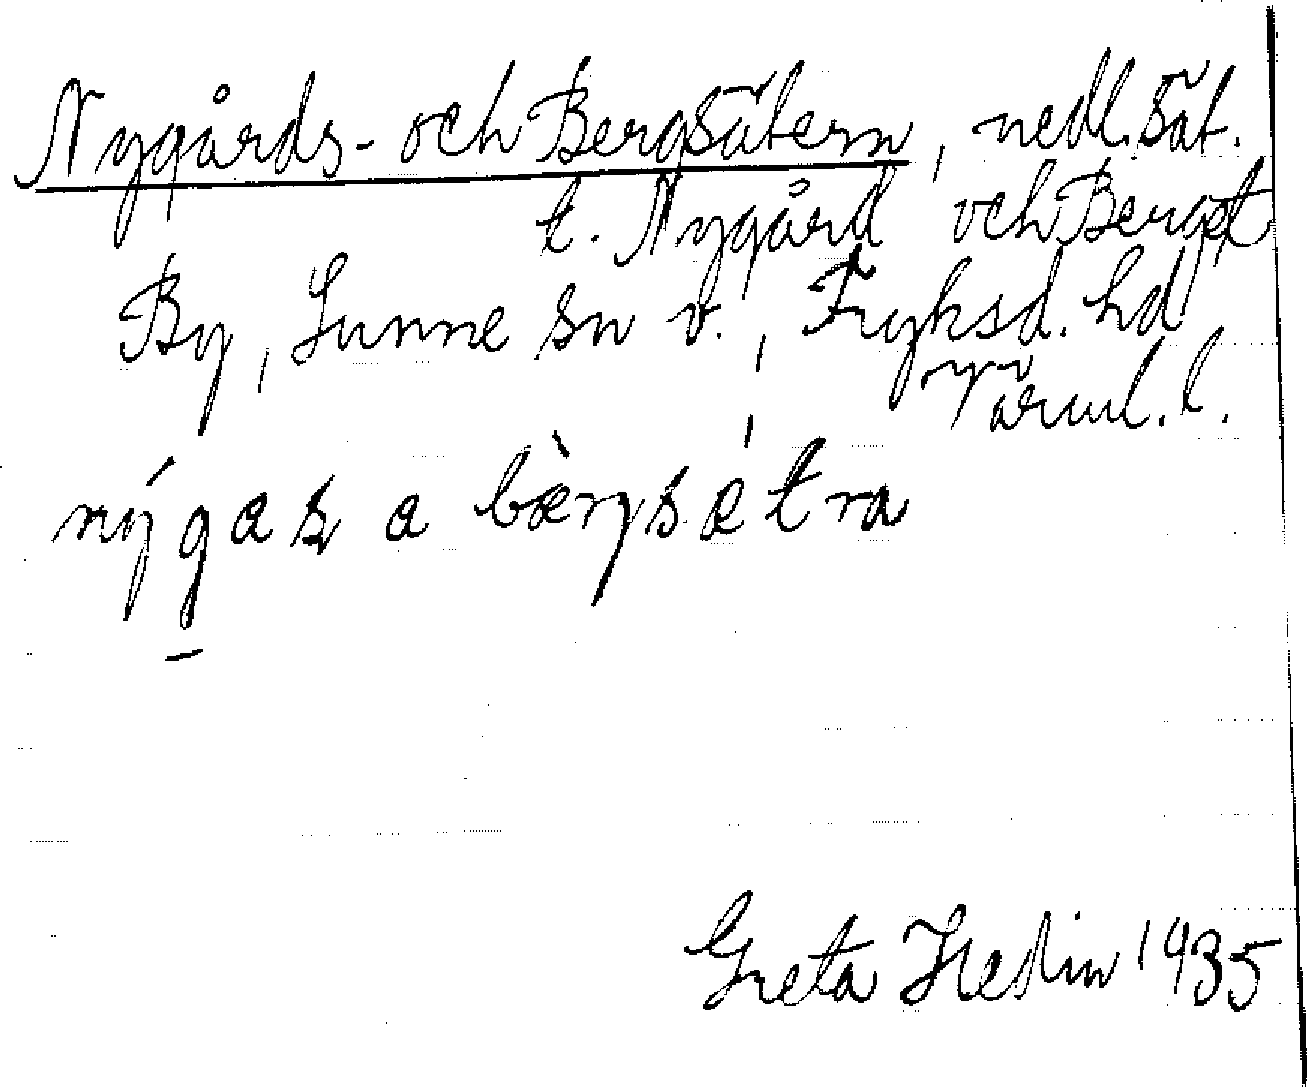 Nygårds- och Bergsätern, nedl. sät.
t. Nygård och Berget
By, Sunne sn v., Fryksd. hd
Värml. l.
nýgas a bæ̀rgsétra
Greta Hedin 1935